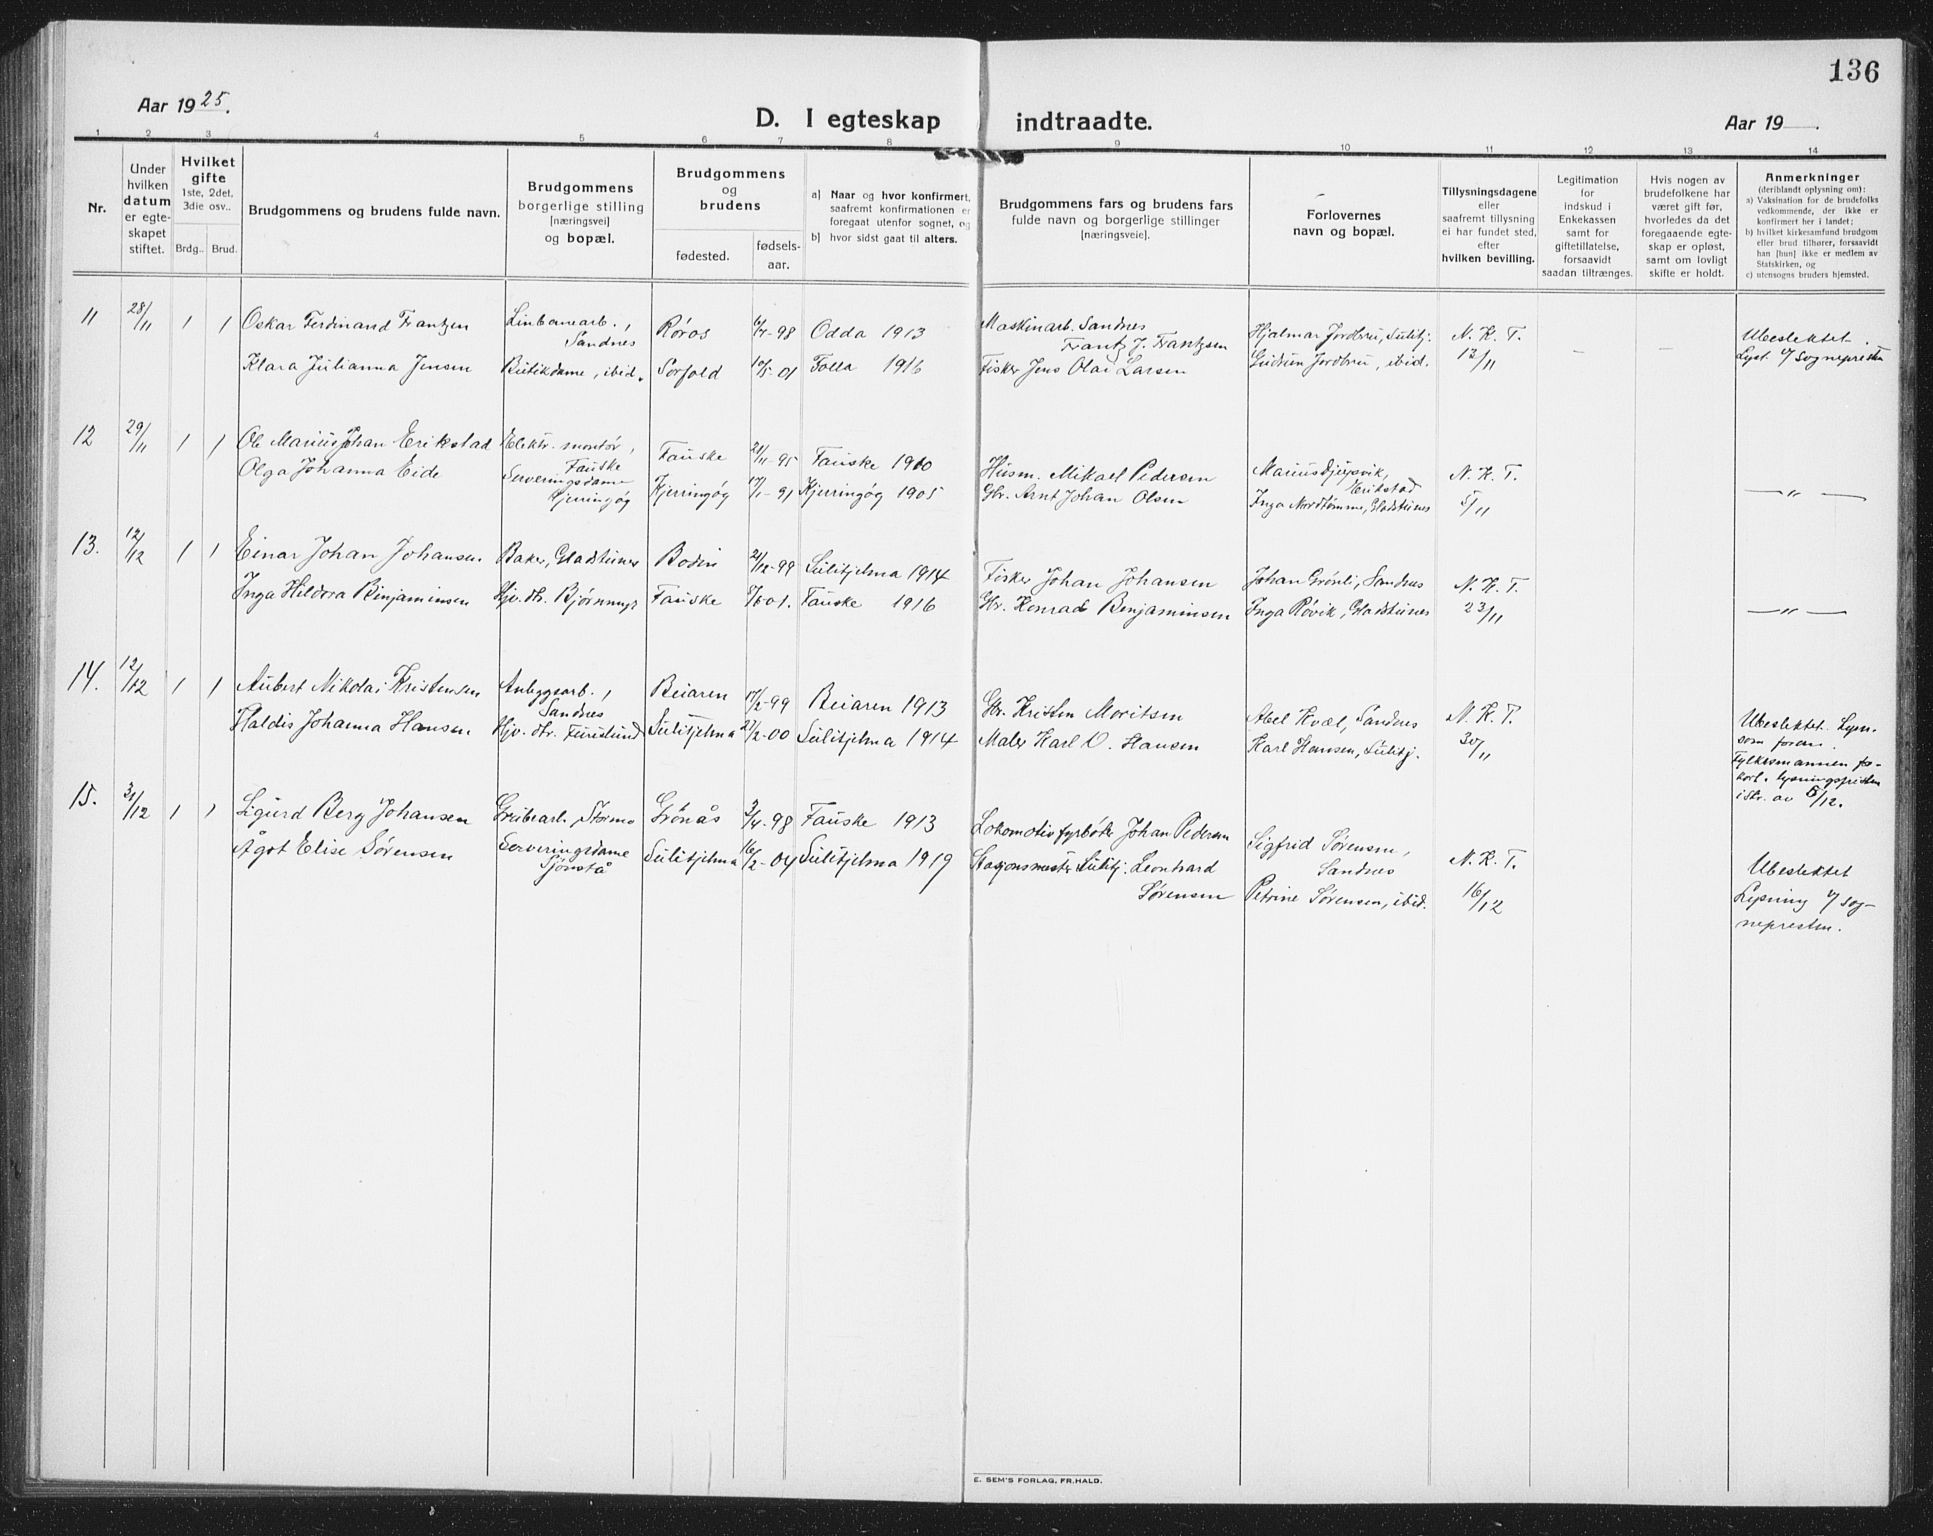 136
Aar 1925.
D. I egteskap indtraadte.
Aar 19 .
1 2 3 4 5 6 7 8 9 10 11 12 13 14
Nr.
Under
hvilken
datum
er egte-
skapet
stiftet.
Hvilket
gifte
1ste, 2det,
3die osv..
Brdg.. Brud.
Brudgommens og brudens fulde navn.
Brudgommens
borgerlige stilling
[næringsvei]
og bopæl.
Brudgommens
og
brudens
fødested.
fødsels-
aar.
a) Naar og hvor konfirmert,
saafremt konfirmationen er
foregaat utenfor sognet, og
b) hvor sidst gaat til alters.
Brudgommens fars og brudens fars
fulde navn og borgerlige stillinger
[næringsveie].
Forlovernes
navn og bopæl.
Tillysningsdagene
eller
saafremt tillysning
ei har fundet sted,
efter
hvilken bevilling.
Legitimation
for
indskud i
Enkekassen
samt for
giftetillatelse,
forsaavidt
saadan tiltrænges.
Hvis nogen av
brudefolkene har
været gift før,
hvorledes da det
foregaaende egte-
skap er opløst,
samt om lovligt
skifte er holdt.
Anmerkninger
(deriblandt oplysning om):
a) Vaksination for de brudefolks
vedkommende, der ikke er
konfirmert her i landet;
b) hvilket kirkesamfund brudgom
eller brud tilhører, forsaavidt
han [hun] ikke er medlem av
Statskirken, og
c) utensogns bruders hjemsted.
11 28/11 1 1 Oskar Ferdinand Frantzen
Linbanearb.,
Sandnes
Røros 6/4-98 Odda 1913
Maskinarb. Sandnes
Frantz J. Frantzen
Hjalmar Jordbru, Sulitj.
N. K. T.
13/11
Ubeslektet.
Lyst v/ Sognepresten
Klara Julianna Jensen Butikdame, ibid. Sørfold 10/5-01 Folla 1916 Fisker Jens Olai Larsen Gudrun Jordbru, ibid.
12 29/11 1 1 Ole Marius Johan Erikstad
Elektr. montør,
Fauske
Fauske 21/11-95 Fauske 1910 Husm. Mikael Pedersen
Marius Djupvik,
Erikstad
N. K. T.
5/11
— " —
Olga Johanna Eide
Serveringsdame
Kjerringøy
Kjerringøy 17/1-91 Kjerringøy 1905 Gbr. Arnt Johan Olsen Inga Nordtømme, Gladsteines
13. 12/12 1 1 Einar Johan Johansen Baker, Gladsteines Bodin 21/12-99 Sulitjelma 1914 Fisker Johan Johansen Johan Grønli, Sandnes N. K. T.
Inga Hildora Benjaminsen Hjv. dtr. Bjørnmyr Fauske 7/6 01. Fauske 1916 Gbr. Konrad Benjaminsen Inga Røvik, Gladsteines 23/11 — " —
14. 12/12 1 1 Aubert Nikolai Kristensen
Anleggsarb.,
Sandnes
Beiaren 17/2-99 Beiaren 1913 Gbr. Kristen Moritsen Abel Kvæl, Sandnes N. K. T.
Haldis Johanna Hansen Hjv. dtr. Furulund Sulitjelma 27/2-00 Sulitjelma 1914 Maler Karl O. Hansen Karl Hansen, Sulitj. 30/11
Ubeslektet. Lysn.
som foran.
Fylkesmannen
lysningsfristen
iflr. av 5/12.
15. 31/12 1 1 Sigurd Berg Johansen Grubearb., Stormo Grønås 3/4-98 Fauske 1913 Lokomotivfyrbøter Johan Pedersen
Sigfrid Sørensen,
Sandnes
N. K. T.
16/12
Ågot Elise Sørensen
Serveringsdame
Sjønstå
Sulitjelma 16/2-04 Sulitjelma 1919
Stasjonsmester Sulitj. Leonhard
Sørensen
Petrine Sørensen, ibid.
Ubeslektet
Lysning v/ sog-
nepresten.
E. SEM'S FORLAG, FR.HALD.